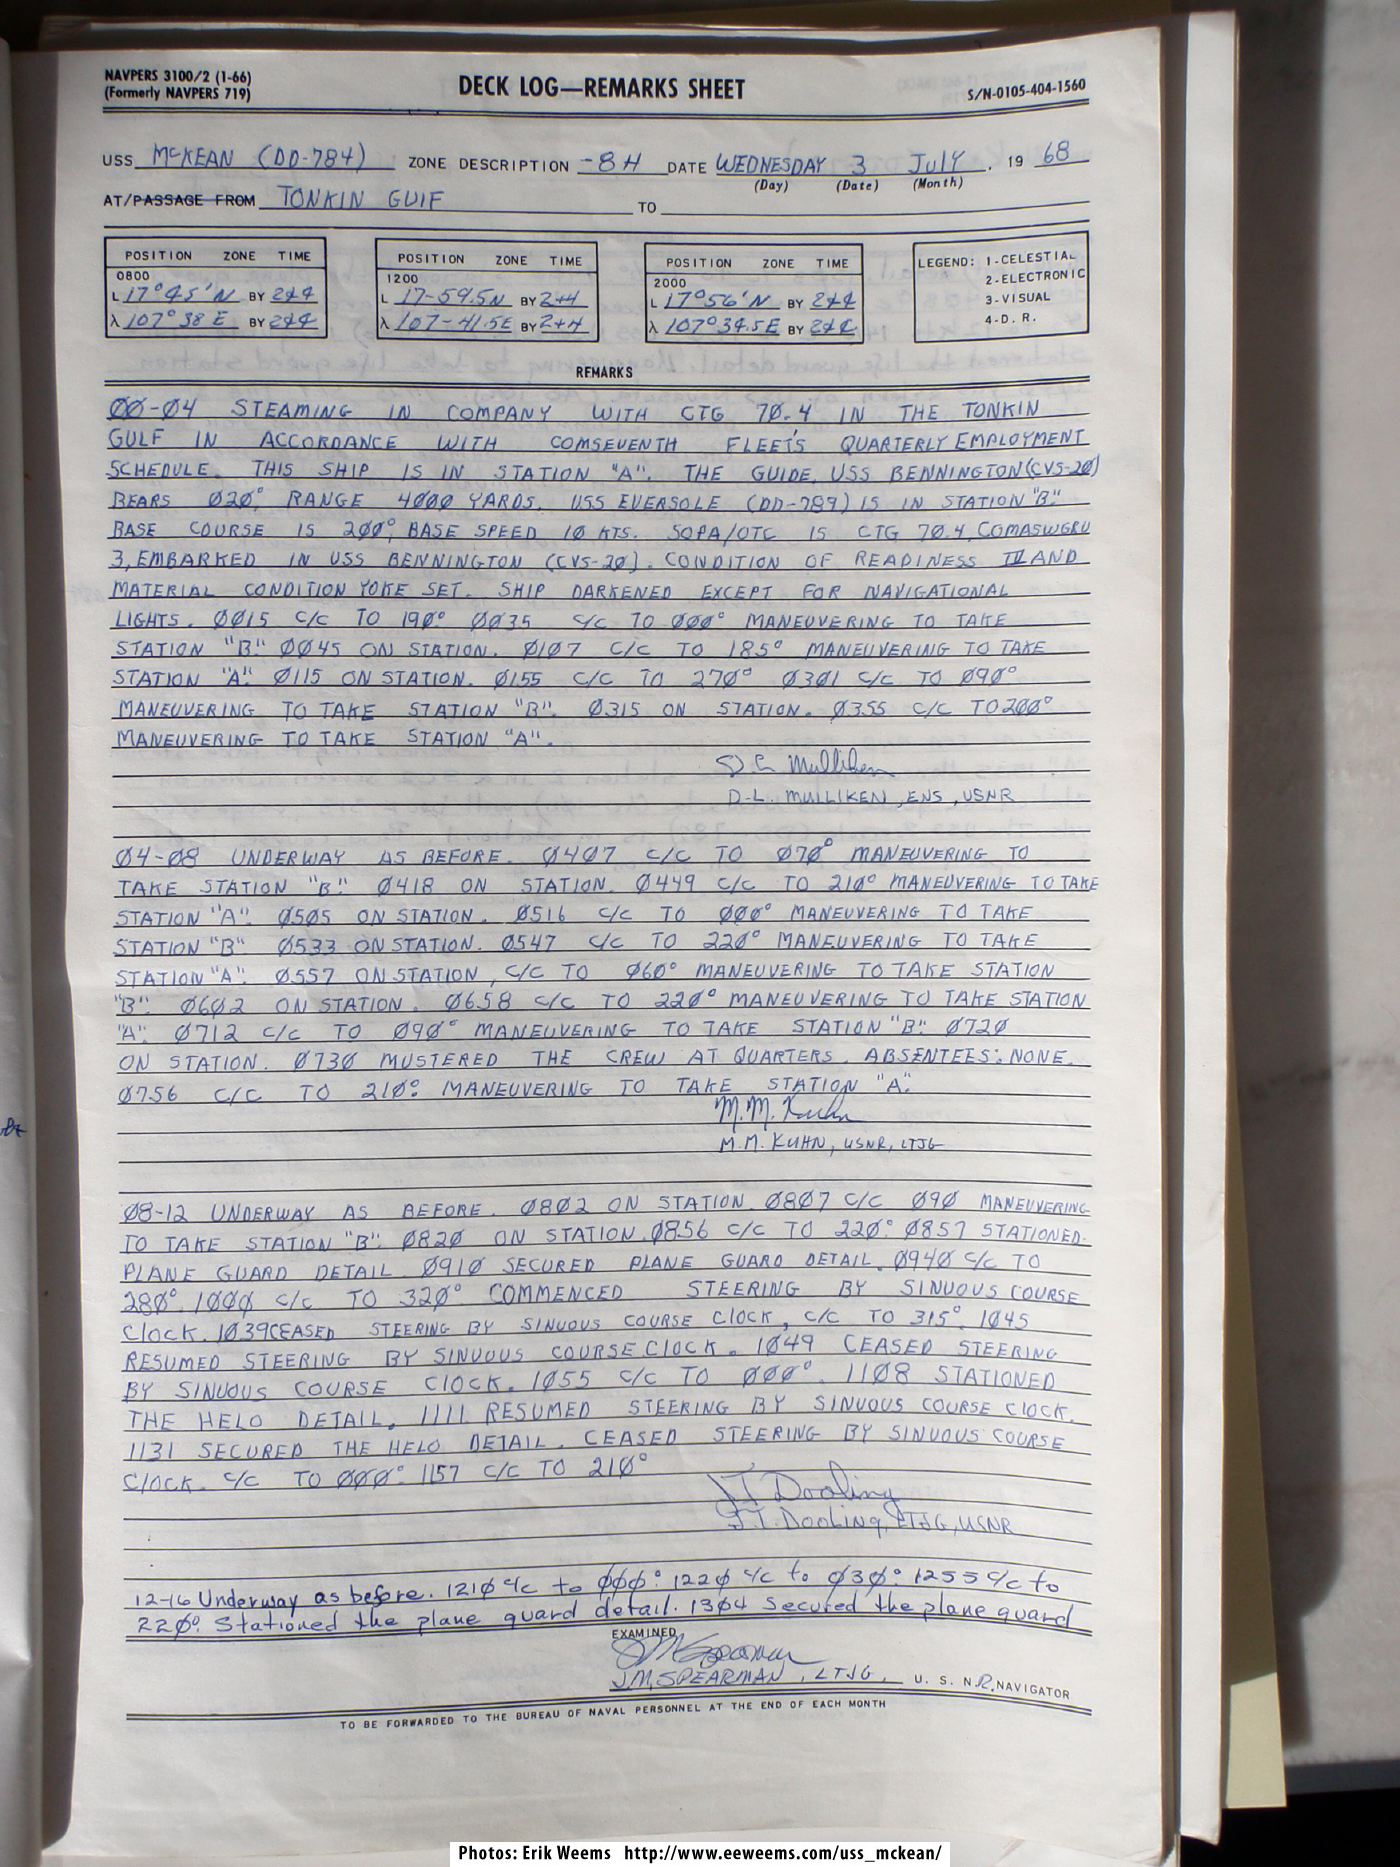 NAVPERS 3100/2 (1-66)
(Formerly NAVPERS 719)
DECK LOG—REMARKS SHEET
S/N-0105-404-1560
USS McKEAN (DD-784) ZONE DESCRIPTION -8H DATE WEDNESDAY 3 JULY, 19 68
(Day) (Date) (Month)
AT/PASSAGE FROM TONKIN GULF TO
POSITION ZONE TIME
0800
L 17°45'N BY 2+4
λ 107°38 E BY 2+4
POSITION ZONE TIME
1200
L 17-59.5N BY 2+4
λ 107-41.5E BY 2+4
POSITION ZONE TIME
2000
L 17°56'N BY 2+4
λ 107°34.5E BY 2+4
LEGEND: 1-CELESTIAL
2-ELECTRONIC
3-VISUAL
4-D. R.
REMARKS
00-04 STEAMING IN COMPANY WITH CTG 70.4 IN THE TONKIN
GULF IN ACCORDANCE WITH COMSEVENTH FLEET'S QUARTERLY EMPLOYMENT
SCHEDULE. THIS SHIP IS IN STATION "A". THE GUIDE, USS BENNINGTON (CVS-20)
BEARS 020°, RANGE 4000 YARDS. USS EVERSOLE (DD-789) IS IN STATION "B".
BASE COURSE IS 200°, BASE SPEED 10 KTS. SOPA/OTC IS CTG 70.4, COMASWGRU
3, EMBARKED IN USS BENNINGTON (CVS-20). CONDITION OF READINESS III AND
MATERIAL CONDITION YOKE SET. SHIP DARKENED EXCEPT FOR NAVIGATIONAL
LIGHTS. 0015 C/C TO 190° 0035 C/C TO 000° MANEUVERING TO TAKE
STATION "B". 0045 ON STATION. 0107 C/C TO 185° MANEUVERING TO TAKE
STATION "A". 0115 ON STATION. 0155 C/C TO 270° 0301 C/C TO 090°
MANEUVERING TO TAKE STATION "B". 0315 ON STATION. 0355 C/C TO 200°
MANEUVERING TO TAKE STATION "A".
D L Mulliken
D.L. MULLIKEN, ENS, USNR
04-08 UNDERWAY AS BEFORE. 0407 C/C TO 070° MANEUVERING TO
TAKE STATION "B". 0418 ON STATION. 0449 C/C TO 210° MANEUVERING TO TAKE
STATION "A". 0505 ON STATION. 0516 C/C TO 000° MANEUVERING TO TAKE
STATION "B" 0533 ON STATION. 0547 C/C TO 220° MANEUVERING TO TAKE
STATION "A". 0557 ON STATION, C/C TO 060° MANEUVERING TO TAKE STATION
"B". 0602 ON STATION. 0658 C/C TO 220° MANEUVERING TO TAKE STATION
"A". 0712 C/C TO 090° MANEUVERING TO TAKE STATION "B". 0720
ON STATION. 0730 MUSTERED THE CREW AT QUARTERS. ABSENTEES: NONE.
0756 C/C TO 210°. MANEUVERING TO TAKE STATION "A".
M.M. Kuhn
M.M. KUHN, USNR, LTJG
08-12 UNDERWAY AS BEFORE. 0802 ON STATION. 0807 C/C 090 MANEUVERING
TO TAKE STATION "B". 0820 ON STATION. 0856 C/C TO 220°. 0857 STATIONED
PLANE GUARD DETAIL. 0910 SECURED PLANE GUARD DETAIL. 0940 C/C TO
280°. 1000 C/C TO 320° COMMENCED STEERING BY SINUOUS COURSE
CLOCK. 1039 CEASED STEERING BY SINUOUS COURSE CLOCK, C/C TO 315°. 1045
RESUMED STEERING BY SINUOUS COURSE CLOCK. 1049 CEASED STEERING
BY SINUOUS COURSE CLOCK. 1055 C/C TO 000°. 1108 STATIONED
THE HELO DETAIL. 1111 RESUMED STEERING BY SINUOUS COURSE CLOCK.
1131 SECURED THE HELO DETAIL. CEASED STEERING BY SINUOUS COURSE
CLOCK. C/C TO 000°. 1157 C/C TO 210°
J T Dooling
J.T. Dooling, LTJG, USNR
12-16 Underway as before. 1210 c/c to 000°. 1220 c/c to 030°. 1255 c/c to
220°. Stationed the plane guard detail. 1304 Secured the plane guard
EXAMINED
JM Spearman
J.M. SPEARMAN, LTJG, U. S. N.R. NAVIGATOR
TO BE FORWARDED TO THE BUREAU OF NAVAL PERSONNEL AT THE END OF EACH MONTH
Photos: Erik Weems http://www.eeweems.com/uss_mckean/